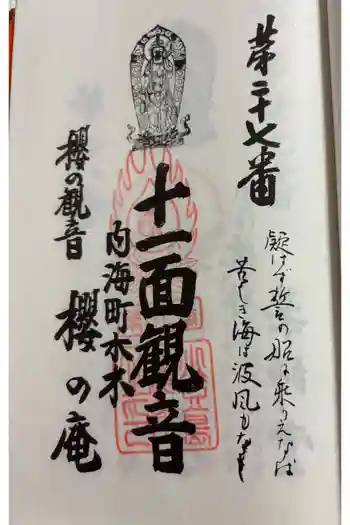 第二十七番
疑はず誓の船に乗りえなば
苦しき海は波風もなし
十一面観音
内海町水木
櫻の観音
櫻の庵